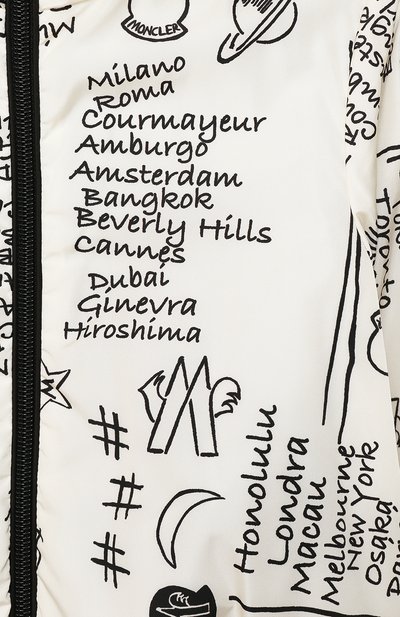 MONCLER
Milano
Roma
Courmayeur
Amburgo
Amsterdam
Bangkok
Beverly Hills
Cannes
Dubai
Ginevra
Hiroshima
#
#
#
Honolulu
Londra
Macau
Melbourne
New York
Osaka